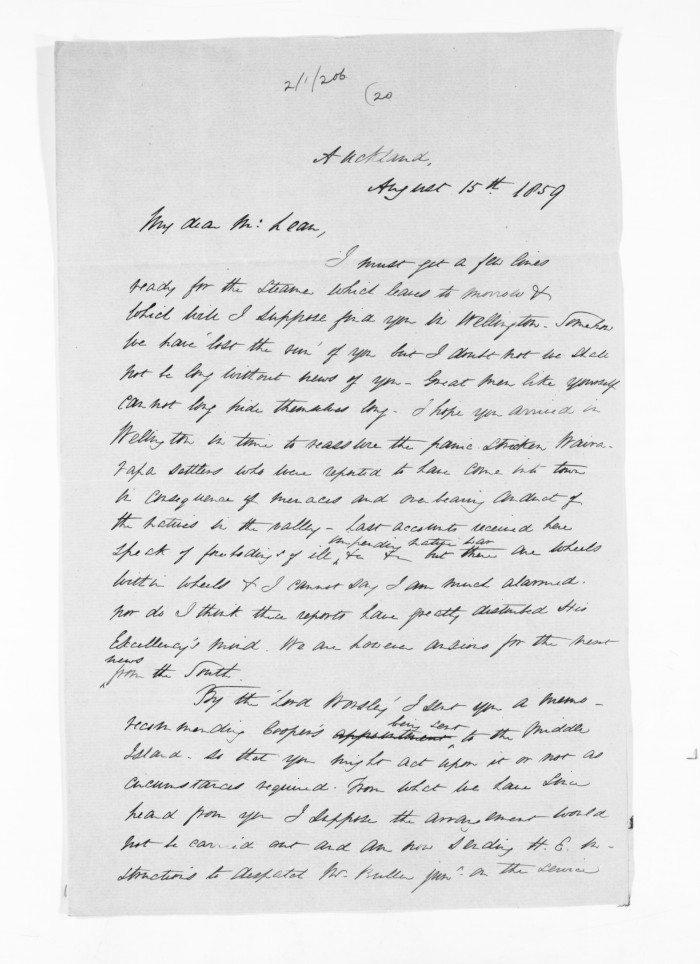 2/1/206
(20
Auckland,
August 15th 1859
My dear Mc Lean,
I must get a few lines
ready for the Steamer which leaves to morrow &
which will I suppose find you in Wellington - Somehow
we have 'lost the run' of you but I doubt not we shall
not be long without news of you - Great men like yourself
cannot long hide themselves long - I hope you arrived in
Wellington in time to reassure the panic stricken Waira-
rapa settlers who were reported to have come into town
in consequence of menaces and overbearing conduct of
the natives in the valley - Last accounts received here
impending native war
speak of forebodings of ill, &c &c but there are wheels
within wheels & I cannot say I am much alarmed.
nor do I think these reports have greatly disturbed His
Excellency's mind. We are however anxious for the next
news
from the South.
By the 'Lord Worsley' I sent you a memo-
being sent
recommending Cooper's appointment to the Middle
Island - so that you might act upon it or not as
circumstances required. From what we have since
heard from you I suppose the arrangement would
not be carried out and am now sending H. E. in-
structions to despatch Mr. Buller junr. on the service